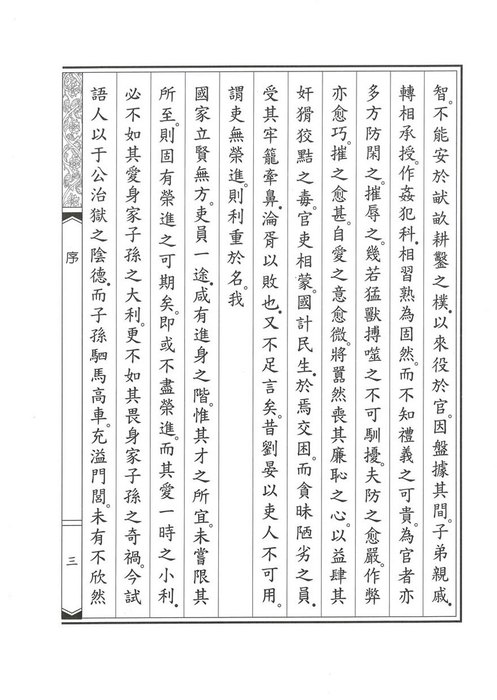 智。不能安於畎畝耕鑿之樸。以來役於官。因盤據其間。子弟親戚。
轉相承授。作姦犯科。相習熟為固然。而不知禮義之可貴。為官者亦
多方防閑之。摧辱之。幾若猛獸搏噬之不可馴擾。夫防之愈嚴。作弊
亦愈巧。摧之愈甚。自愛之意愈微。將囂然喪其廉恥之心。以益肆其
奸猾狡黠之毒。官吏相蒙。國計民生。於焉交困。而貪昧陋劣之員。
受其牢籠牽鼻。淪胥以敗也。又不足言矣。昔劉晏以吏人不可用。
謂吏無榮進。則利重於名。我
國家立賢無方。吏員一途。咸有進身之階。惟其才之所宜。未嘗限其
所至。則固有榮進之可期矣。即或不盡榮進。而其愛一時之小利。
必不如其愛身家子孫之大利。更不如其畏身家子孫之奇禍。今試
語人以于公治獄之陰德。而子孫駟馬高車。充溢門閭。未有不欣然
序
三